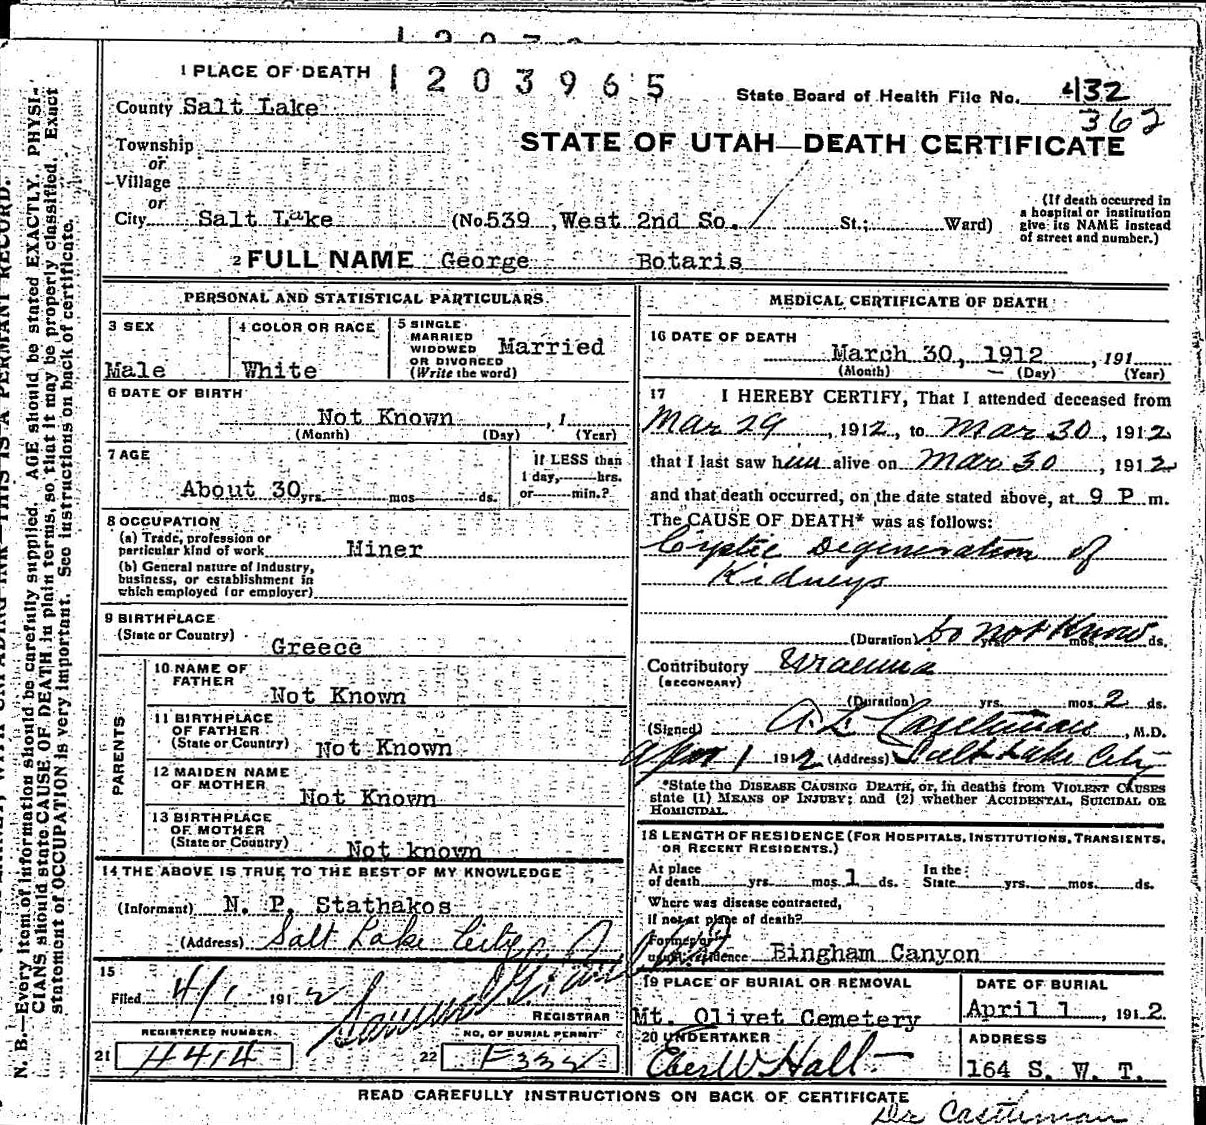 1 PLACE OF DEATH
1203965
County Salt Lake
State Board of Health File No. 432
362
Township
or
Village
or
STATE OF UTAH—DEATH CERTIFICATE
City Salt Lake (No. 539, West 2nd So. St.; Ward)
(If death occurred in
a hospital or institution
give its NAME instead
of street and number.)
2 FULL NAME George Botaris
PERSONAL AND STATISTICAL PARTICULARS
3 SEX
Male
4 COLOR OR RACE
White
5 SINGLE
MARRIED
WIDOWED
OR DIVORCED
(Write the word)
Married
6 DATE OF BIRTH
Not Known, 1
(Month) (Day) (Year)
7 AGE
About 30 yrs. mos. ds.
If LESS than
1 day, hrs.
or min.?
8 OCCUPATION
(a) Trade, profession or
particular kind of work Miner
(b) General nature of industry,
business, or establishment in
which employed (or employer)
9 BIRTHPLACE
(State or Country) Greece
PARENTS
10 NAME OF
FATHER
Not Known
11 BIRTHPLACE
OF FATHER
(State or Country) Not Known
12 MAIDEN NAME
OF MOTHER
Not Known
13 BIRTHPLACE
OF MOTHER
(State or Country) Not known
14 THE ABOVE IS TRUE TO THE BEST OF MY KNOWLEDGE
(Informant) N. P. Stathakos
(Address) Salt Lake City
15
Filed 4/1 1912
REGISTRAR
REGISTERED NUMBER
21 4414
NO. OF BURIAL PERMIT
22
MEDICAL CERTIFICATE OF DEATH
16 DATE OF DEATH
March 30, 1912, 191
(Month) (Day) (Year)
17 I HEREBY CERTIFY, That I attended deceased from
Mar 29, 1912, to Mar 30, 1912
that I last saw him alive on Mar 30, 1912
and that death occurred, on the date stated above, at 9 P. m.
The CAUSE OF DEATH* was as follows:
Cystic Degeneration of
Kidneys
(Duration) Do not Know yrs. mos. ds.
Contributory Uraemia
(SECONDARY)
(Duration) yrs. mos. 2 ds.
(Signed) A. L. Castleman, M.D.
Apr 1 1912 (Address) Salt Lake City
*State the DISEASE CAUSING DEATH, or, in deaths from VIOLENT CAUSES
state (1) MEANS OF INJURY; and (2) whether ACCIDENTAL, SUICIDAL OR
HOMICIDAL.
18 LENGTH OF RESIDENCE (FOR HOSPITALS, INSTITUTIONS, TRANSIENTS,
OR RECENT RESIDENTS.)
At place
of death yrs. mos. 1 ds.
In the
State yrs. mos. ds.
Where was disease contracted,
if not at place of death?
Former or
usual residence Bingham Canyon
19 PLACE OF BURIAL OR REMOVAL
Mt. Olivet Cemetery
DATE OF BURIAL
April 1, 1912.
20 UNDERTAKER
Eber W Hall
ADDRESS
164 S. W. T.
READ CAREFULLY INSTRUCTIONS ON BACK OF CERTIFICATE
Dr Castleman
N. B.—Every item of information should be carefully supplied. AGE should be stated EXACTLY. PHYSI-
CIANS should state CAUSE OF DEATH in plain terms, so that it may be properly classified. Exact
statement of OCCUPATION is very important. See instructions on back of certificate.